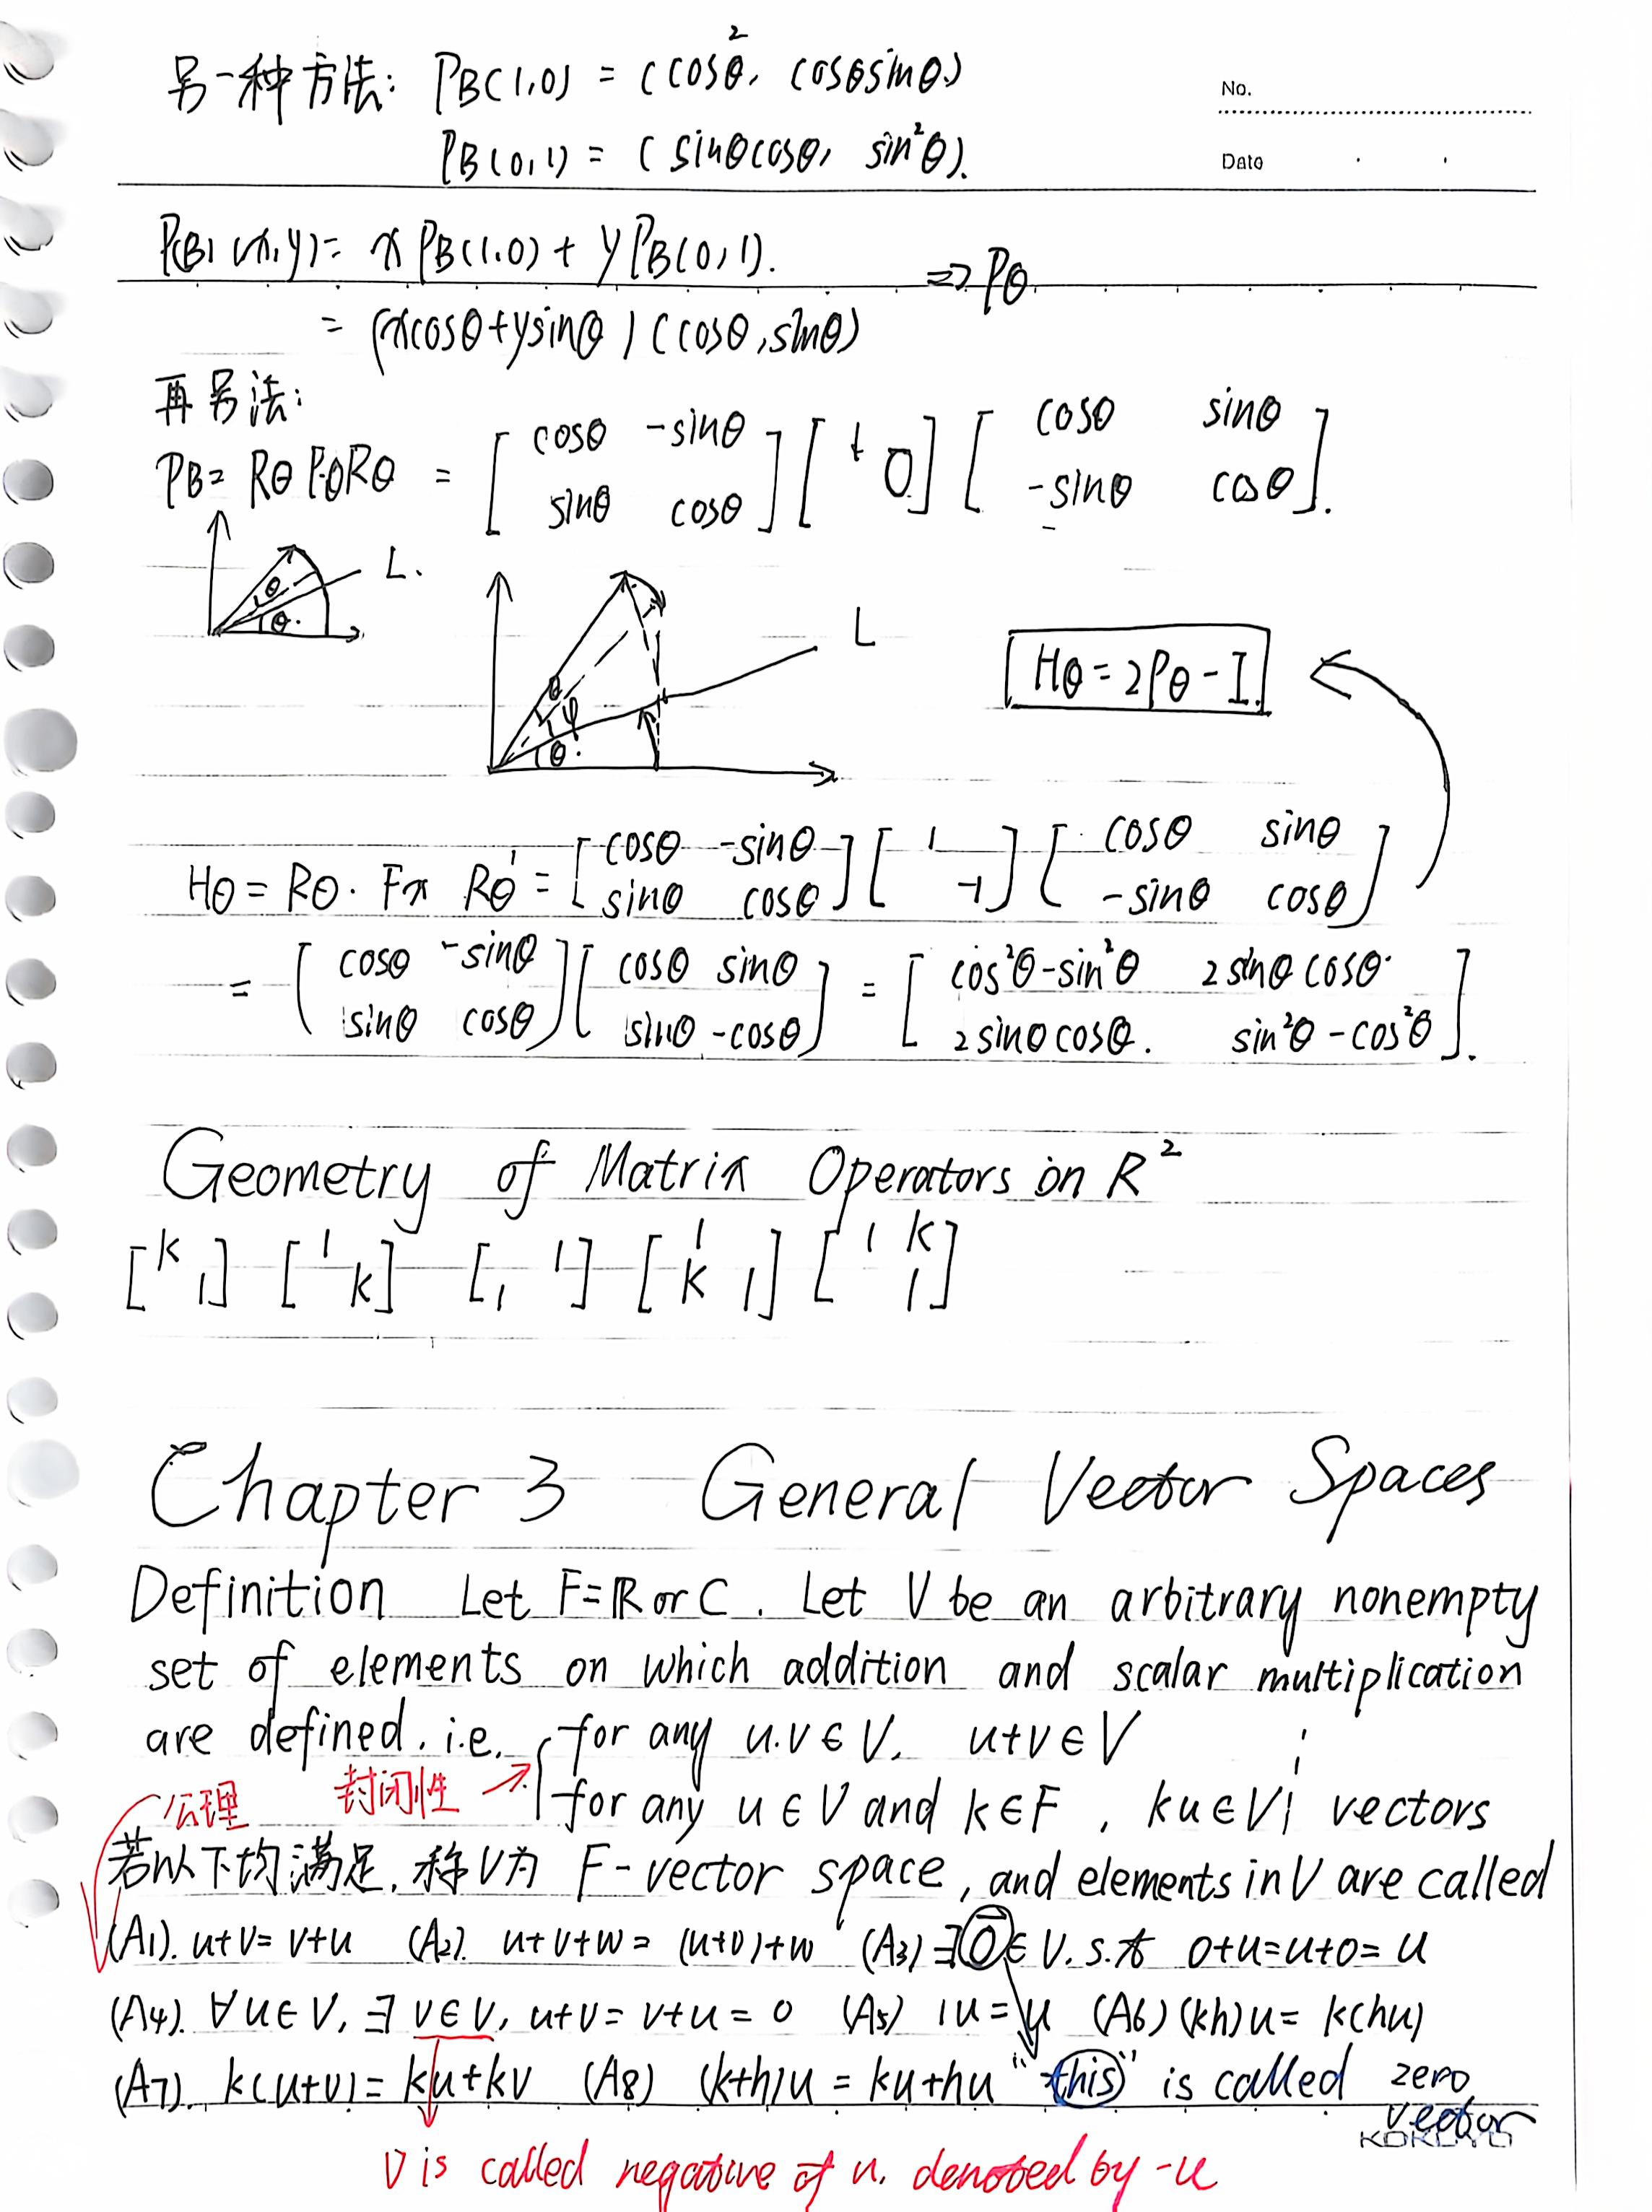 另一种方法: PB(1,0) = (cos²θ, cosθsinθ)
No.
PB(0,1) = (sinθcosθ, sin²θ).
Date
P(B) (x,y) = x PB(1,0) + y PB(0,1).
⇒ Pθ
= (xcosθ+ysinθ) (cosθ, sinθ)
再另法:
PB = Rθ P0 Rθ = [cosθ -sinθ; sinθ cosθ] [1 0] [cosθ sinθ; -sinθ cosθ].
θ θ L.
θ φ θ L
Hθ = 2Pθ - I
Hθ = Rθ · Fx Rθ⁻¹ = [cosθ -sinθ; sinθ cosθ] [1; -1] [cosθ sinθ; -sinθ cosθ]
= [cosθ -sinθ; sinθ cosθ] [cosθ sinθ; sinθ -cosθ] = [cos²θ-sin²θ 2sinθcosθ; 2sinθcosθ. sin²θ-cos²θ].
Geometry of Matrix Operators on R²
[k; 1] [1; k] [1; 1] [1; k 1] [1 k; 1]
Chapter 3 General Vector Spaces
Definition Let F=ℝ or C. Let V be an arbitrary nonempty
set of elements on which addition and scalar multiplication
are defined. i.e. for any u.v ∈ V, u+v ∈ V ;
公理 封闭性 for any u ∈ V and k ∈ F, ku ∈ V; vectors
若以下均满足, 称V为 F-vector space, and elements in V are called
(A1). u+v = v+u (A2). u+v+w = (u+v)+w (A3) ∃ 0 ∈ V. s.t 0+u=u+0=u
(A4). ∀u∈V, ∃ v∈V, u+v = v+u = 0 (A5) 1u = u (A6) (kh)u = k(hu)
(A7). k(u+v) = ku+kv (A8) (k+h)u = ku+hu "this" is called zero
vector
KOKUYO
v is called negative of u. denoted by -u